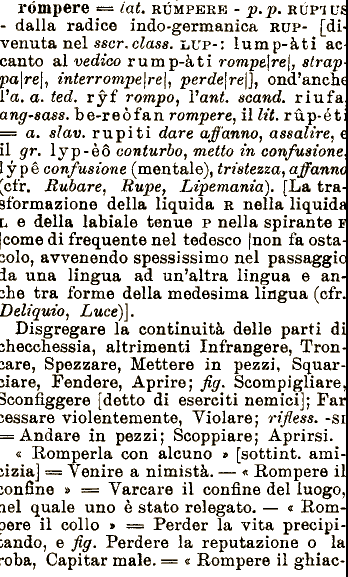 rómpere = lat. RÚMPERE - p. p. RÚPTUS
- dalla radice indo-germanica RUP- [di-
venuta nel sscr. class. LUP-: lump-àti ac-
canto al vedico rump-àti rompe|re|, strap-
pa|re|, interrompe|re|, perde|re|], ond'anche
l'a. a. ted. rŷf rompo, l'ant. scand. riufa,
ang-sass. be-reòfan rompere, il lit. rûp-éti
= a. slav. rupiti dare affanno, assalire, e
il gr. lyp-èô conturbo, metto in confusione,
lýpê confusione (mentale), tristezza, affanno
(cfr. Rubare, Rupe, Lipemania). [La tra-
sformazione della liquida R nella liquida
L e della labiale tenue P nella spirante F
|come di frequente nel tedesco |non fa osta-
colo, avvenendo spessissimo nel passaggio
da una lingua ad un'altra lingua e an-
che tra forme della medesima lingua (cfr.
Deliquio, Luce)].
Disgregare la continuità delle parti di
checchessia, altrimenti Infrangere, Tron-
care, Spezzare, Mettere in pezzi, Squar-
ciare, Fendere, Aprire; fig. Scompigliare,
Sconfiggere [detto di eserciti nemici]; Far
cessare violentemente, Violare; rifless. -SI
= Andare in pezzi; Scoppiare; Aprirsi.
« Romperla con alcuno » [sottint. ami-
cizia] = Venire a nimistà. — « Rompere il
confine » = Varcare il confine del luogo,
nel quale uno è stato relegato. — « Rom-
pere il collo » = Perder la vita precipi-
tando, e fig. Perdere la reputazione o la
roba, Capitar male. = « Rompere il ghiac-